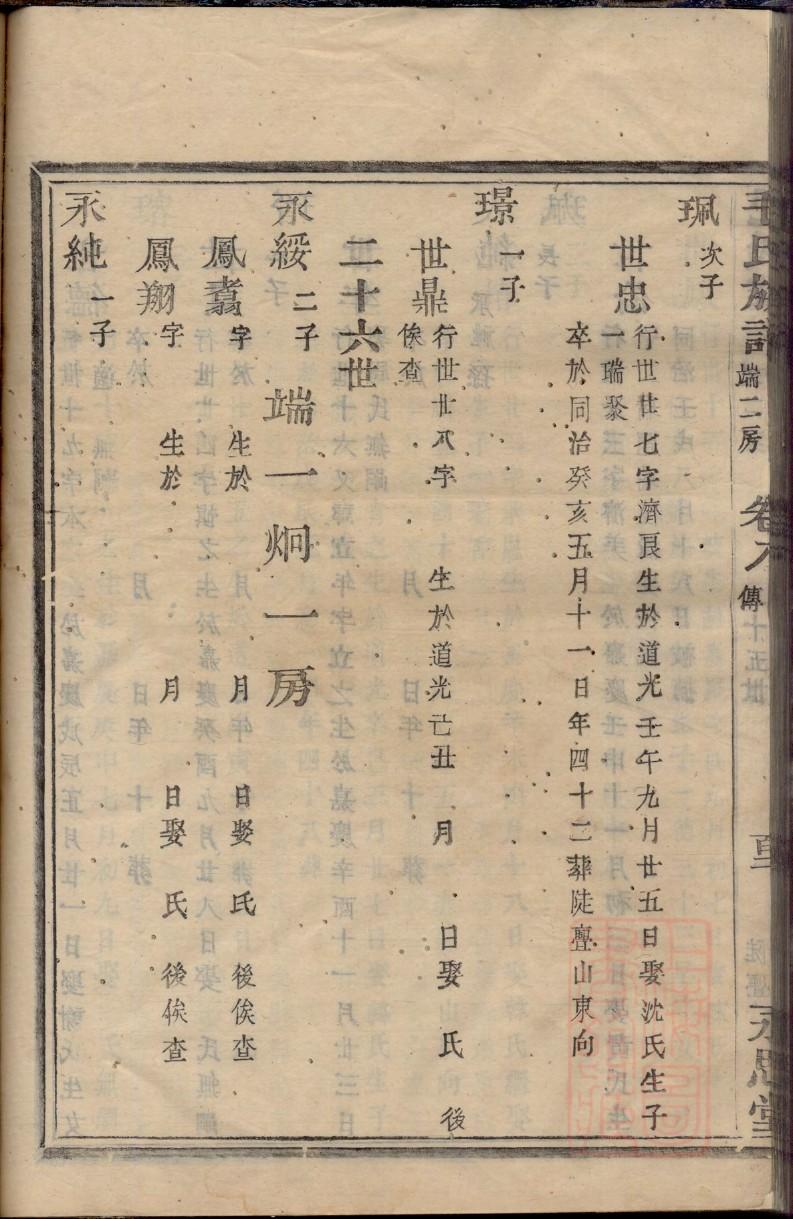 毛氏族譜 端二房 卷六 傳 永思堂
珮 次子
世忠 行世廿七字濟良生於道光壬午九月廿五日娶沈氏生子
一瑞聚
卒於同治癸亥五月十一日年四十二葬陡亹山東向
璟 一子
世鼎 行世廿八字 生於道光己丑 月 日娶 氏 後
俟查
二十六世
端一炯一房
永綏 二子
鳳翥 字 生於 月 日娶 氏 後俟查
鳳翔 字 生於 月 日娶 氏 後俟查
永純 一子